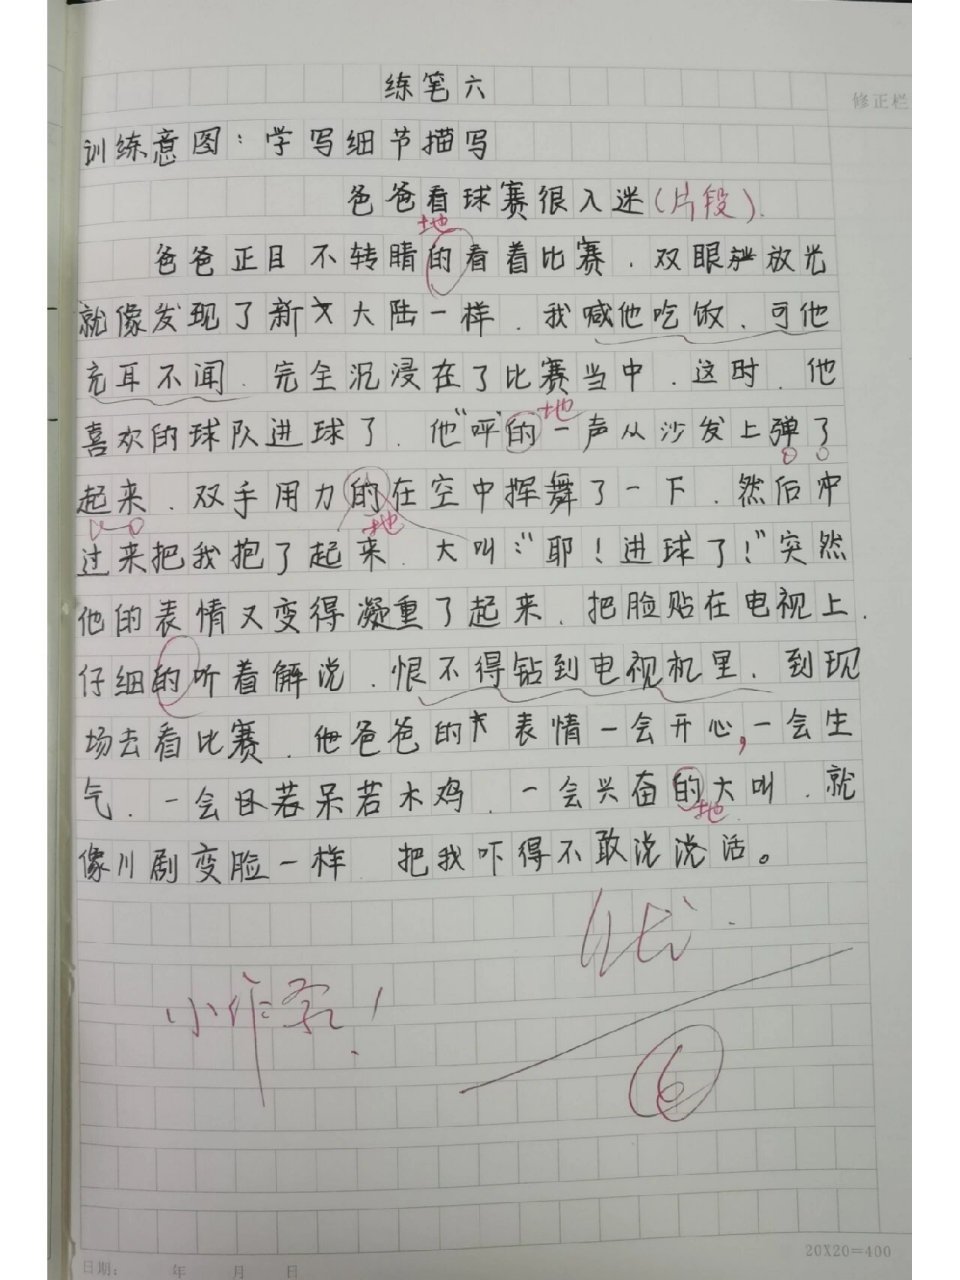 练笔六
修正栏
训练意图：学写细节描写
爸爸看球赛很入迷(片段).
地
爸爸正目不转睛的看着比赛，双眼放光
就像发现了新大陆一样，我喊他吃饭，可他
充耳不闻，完全沉浸在了比赛当中，这时，他
地
喜欢的球队进球了，他“呼”的一声从沙发上弹了
起来，双手用力的在空中挥舞了一下，然后冲
地
过来把我抱了起来，大叫：“耶！进球了！”突然
他的表情又变得凝重了起来，把脸贴在电视上，
仔细的听着解说，恨不得钻到电视机里，到现
场去看比赛，爸爸的表情一会开心，一会生
气，一会呆若木鸡，一会兴奋的大叫，就
地
像川剧变脸一样，把我吓得不敢说说话。
小作家！
6
20X20=400
日期： 年 月 日